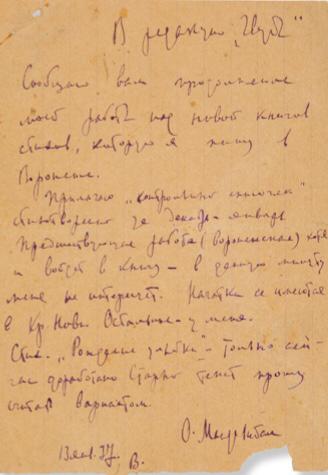 В редакцию „Звезд"
Сообщаю вам продолжение
моей работы над новой книгой
стихов, которую я пишу в
Воронеже.
Прилагаю „контрольно список"
стихотворений за декабрь – январь
Предшествующая работа (Воронежская) хотя
и войдет в книгу – в данную минуту
меня не интересует. Начатки ее имеются
в Кр. Нови. Остальное – у меня.
Стих. „Рождение улыбки" – только сей-
час доработано Старый текст прошу
считать вариантом.
О. Мандельштам
13 янв. 37 г.
В.